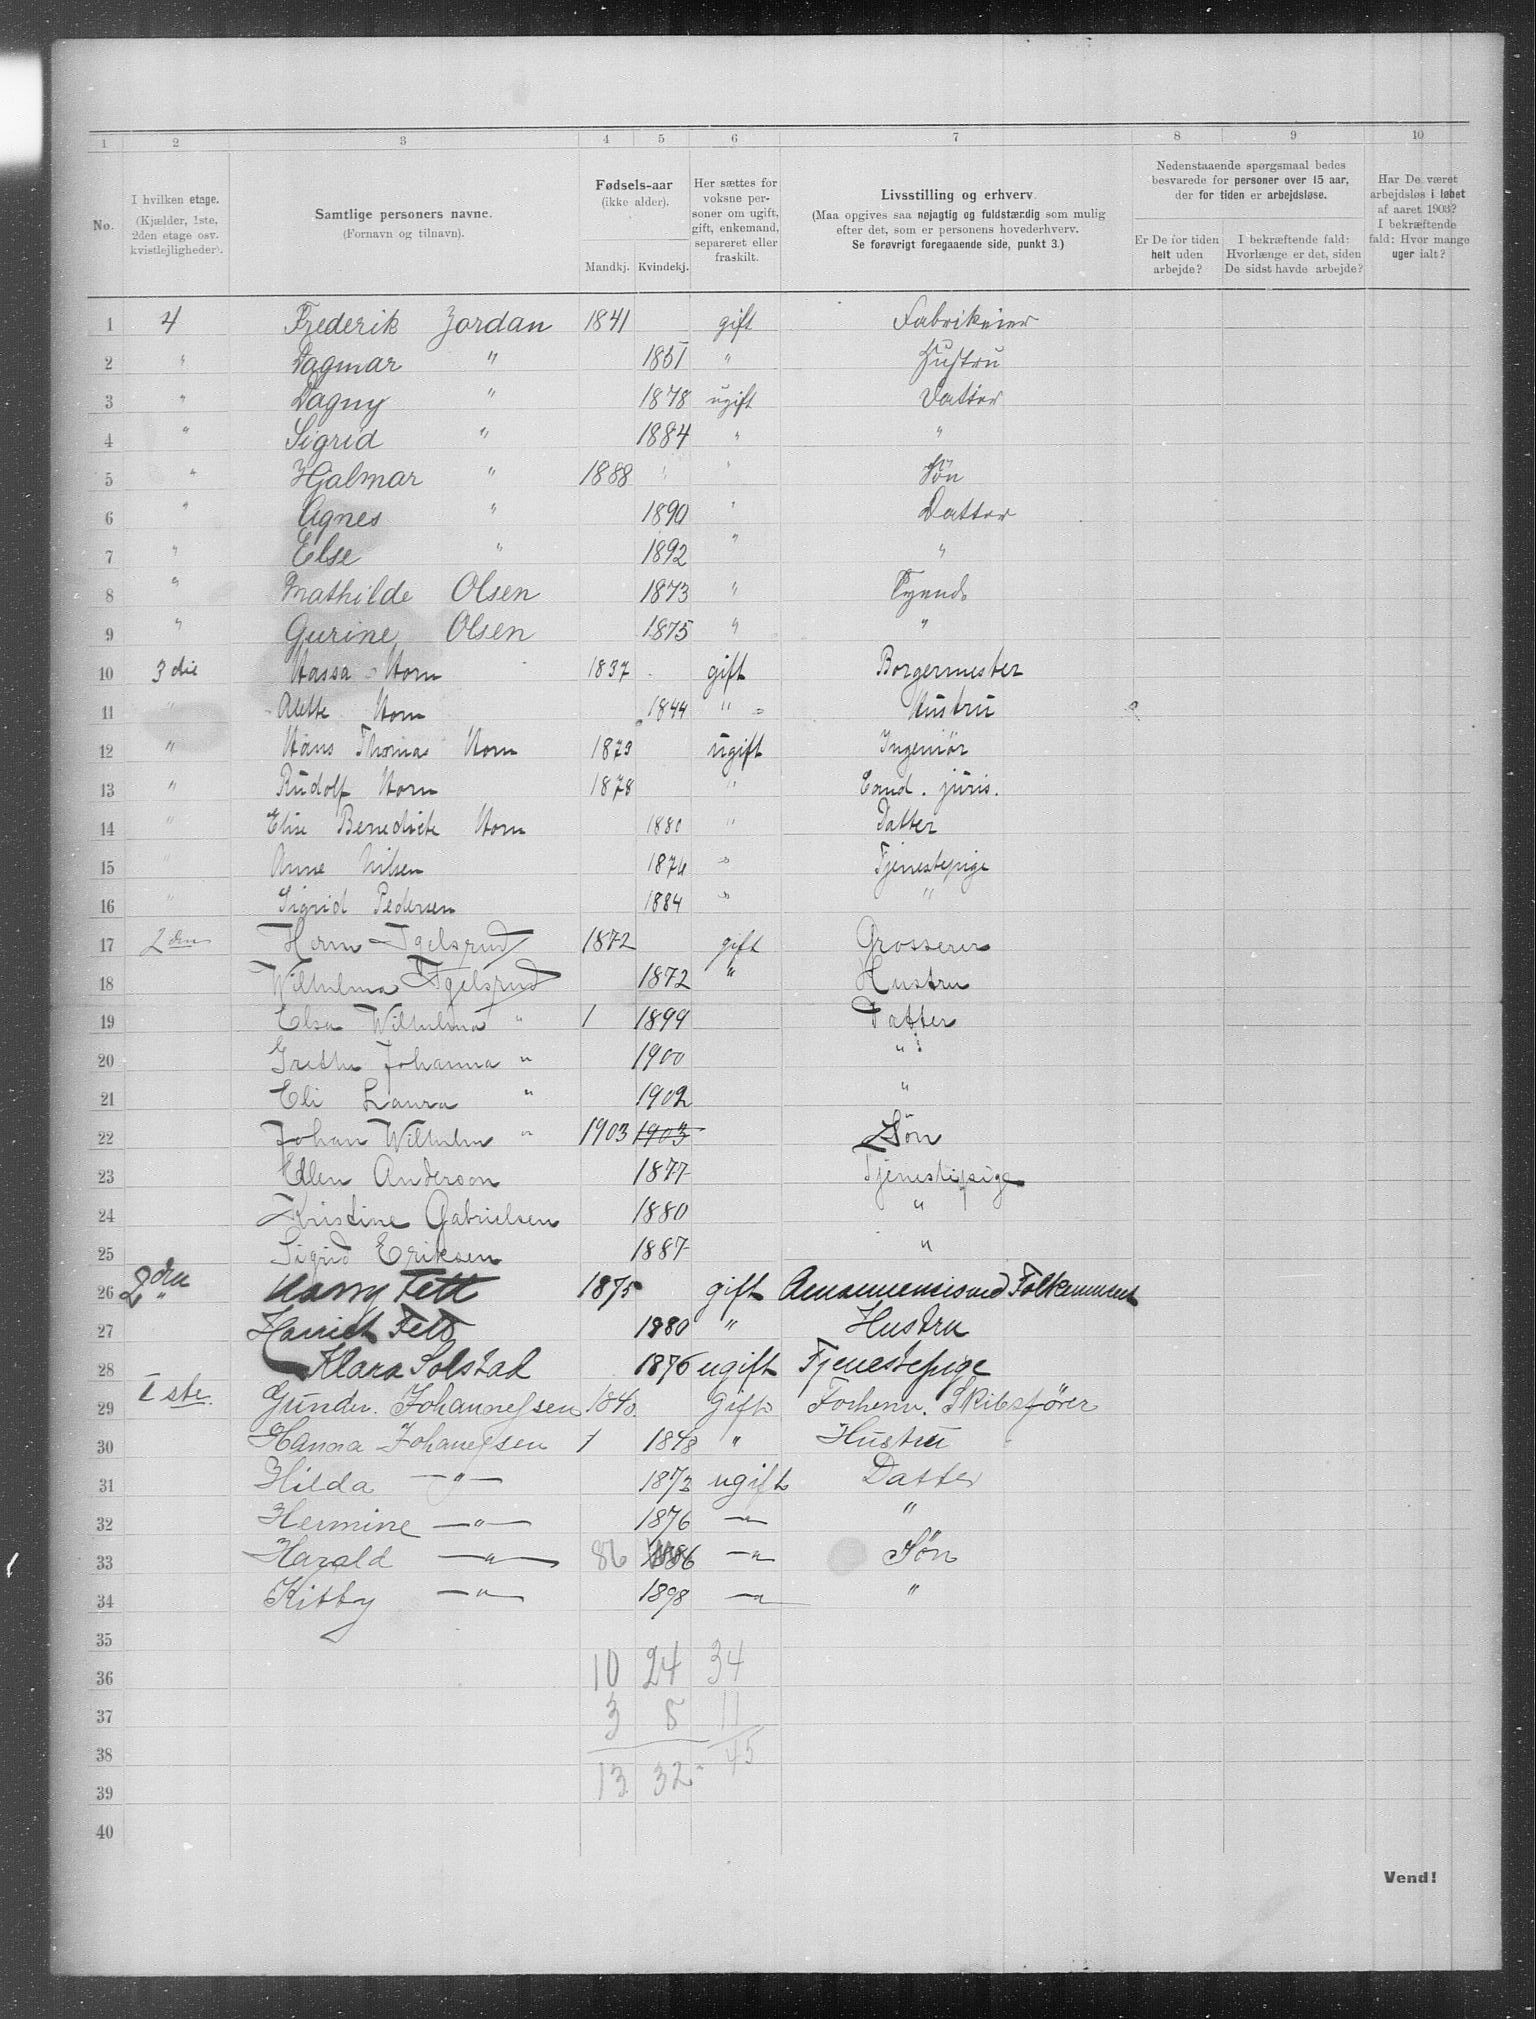 1 2 3 4 5 6 7 8 9 10
No. I hvilken etage. (Kjælder, 1ste, 2den etage osv. kvistlejligheder).
Samtlige personers navne. (Fornavn og tilnavn).
Fødsels-aar (ikke alder). Mandkj. Kvindekj.
Her sættes for voksne personer om ugift, gift, enkemand, separeret eller fraskilt.
Livsstilling og erhverv. (Maa opgives saa nøjagtig og fuldstærdig som mulig efter det, som er personens hovederhverv. Se forøvrigt foregaaende side, punkt 3.)
Nedenstaaende spørgsmaal bedes besvarede for personer over 15 aar, der for tiden er arbejdsløse.
Er De for tiden helt uden arbejde?
I bekræftende fald: Hvorlænge er det, siden De sidst havde arbejde?
Har De været arbejdsløs i løbet af aaret 1903? I bekræftende fald: Hvor mange uger ialt?
1 4 Frederik Jordan 1841 gift Fabrikeier
2 " Dagmar " 1851 " Hustru
3 " Dagny " 1878 ugift Datter
4 " Sigrid " 1884 " "
5 " Hjalmar " 1888 " Søn
6 " Agnes " 1890 " Datter
7 " Else " 1892 " "
8 " Mathilde Olsen 1873 " Tyende
9 " Gurine Olsen 1875 " "
10 3die Hassa Horn 1837 gift Borgermester
11 " Alette Horn 1844 " Hustru
12 " Hans Thomas Horn 1873 ugift Ingeniør
13 " Rudolf Horn 1878 " Cand. juris.
14 " Elise Benedicte Horn 1880 " Datter
15 " Anne Nilsen 1874 " Tjenestepige
16 " Sigrid Pedersen 1884 " "
17 2den Herm Igelsrud 1872 gift Grosserer
18 Wilhelma Igelsrud 1872 " Hustru
19 Elsa Wilhelma " 1 1899 Datter
20 Grethe Johanna " 1900 "
21 Eli Laura " 1902 "
22 Johan Wilhelm " 1903 1903 Søn
23 Ellen Anderson 1877 Tjenestepige
24 Kristine Gabrielsen 1880 "
25 Sigrid Eriksen 1887 "
26 2den " Harry Fett 1875 gift Folkemuseet
27 Harriet Fett 1880 " Hustru
28 Klara Solstad 1876 ugift Tjenestepige
29 1ste. Gunder. Johannessen 1840 Gift Forhenv. Skibsfører
30 Hanna Johanessen 1 1848 " Hustru
31 Hilda —"— 1872 ugift Datter
32 Hermine —"— 1876 —"— "
33 Harald —"— 86 1886 —"— Søn
34 Kitty —"— 1898 —"— "
35
36 10 24 34
37 3 8 11
38 45
39 13 32
40
Vend!